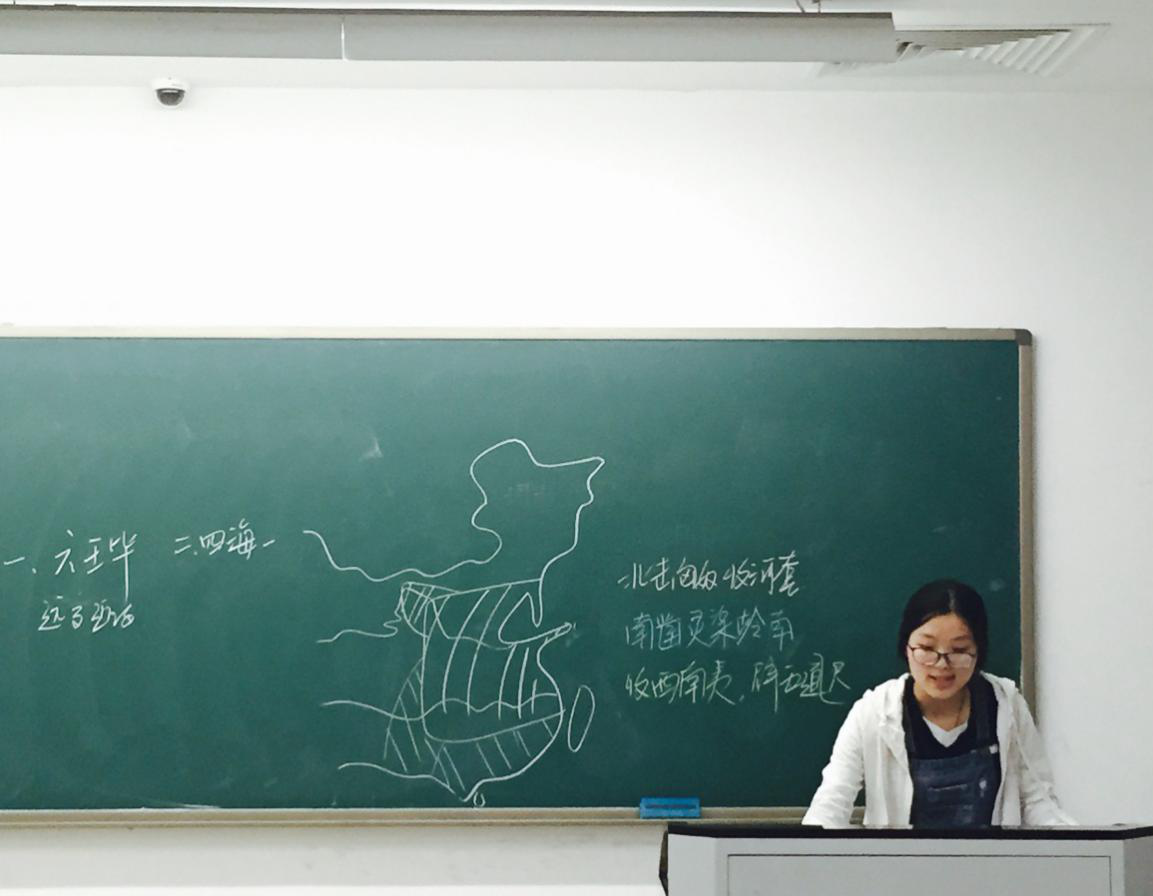 一、六王毕 二、四海一
远交近攻
北击匈奴 收河套
南凿灵渠 岭南
收西南夷,辟五道尺